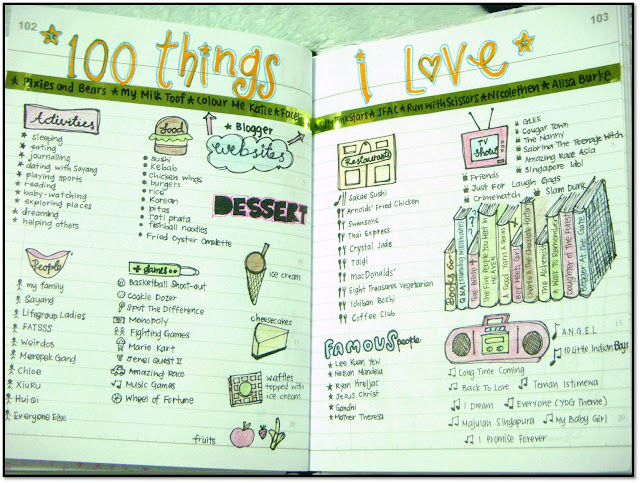 102
103
100 things i Love
★ Pixies and Bears ★ My Milk Toof ★ Colour Me Katie ★
JFAC ★ Run with Scissors ★ Nicolethen ★ Alisa Burke
Activities
sleeping
eating
journalling
dating with Sayang
playing sports
reading
baby-watching
exploring places
dreaming
helping others
food
sushi
Kebab
chicken wings
burgers
rice
Korean
pitas
roti prata
fishball noodles
Fried Oyster Omelette
★ Blogger
websites
DESSERT
ice cream
cheesecakes
Waffles
topped with
ice cream
fruits
People
my family
Sayang
Lifegroup Ladies
FATSSS
Weirdos
Merepek Gang
Chloe
XiuRu
HuiQi
Everyone Else
games
Basketball Shoot-out
Cookie Dozer
Spot The Difference
Monopoly
Fighting Games
Mario Kart
Jewel Quest II
Amazing Race
Music Games
Wheel of Fortune
Restaurants
Sakae Sushi
Arnolds' Fried Chicken
Swensons
Thai Express
Crystal Jade
MacDonalds'
Eight Treasures Vegetarian
Ichiban Boshi
Coffee Club
TV
Shows
GLEE
Cougar Town
The Nanny
Sabrina The Teenage Witch
Amazing Race Asia
Singapore Idol
Friends
Just For Laugh Gags
Crimewatch
Slam Dunk
Books
The Five People You Meet in
HEAVEN
Charlie & The Chocolate Factory
The Alchemist
A Walk To Remember
Daughter Of The Forest
FAMOUS people
Lee Kuan Yew
Nelson Mandela
Ryan Hreljac
Jesus Christ
Gandhi
Mother Theresa
A.N.G.E.L
10 Little Indian Boys
Long Time Coming
Back To Love
Teman Istimewa
I Dream
Everyone (YOG Theme)
Majulah Singapura
My Baby Girl
I Promise Forever